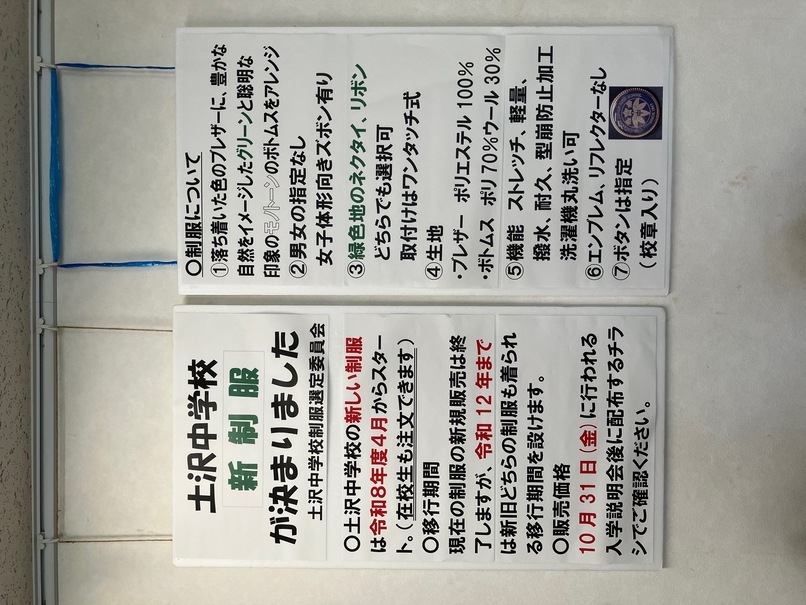 土沢中学校
新制服
が決まりました
土沢中学校制服選定委員会
〇土沢中学校の新しい制服
は令和8年度4月からスター
ト。(在校生も注文できます)
〇移行期間
現在の制服の新規販売は終
了しますが、令和12年まで
は新旧どちらの制服も着られ
る移行期間を設けます。
〇販売価格
10月31日(金)に行われる
入学説明会後に配布するチラ
シでご確認ください。
〇制服について
①落ち着いた色のブレザーに、豊かな
自然をイメージしたグリーンと聡明な
印象のモノトーンのボトムスをアレンジ
②男女の指定なし
女子体形向きズボン有り
③緑色地のネクタイ、リボン
どちらでも選択可
取付けはワンタッチ式
④生地
・ブレザー ポリエステル100%
・ボトムス ポリ70%ウール30%
⑤機能 ストレッチ、軽量、
撥水、耐久、型崩防止加工
洗濯機丸洗い可
⑥エンブレム、リフレクターなし
⑦ボタンは指定
(校章入り)